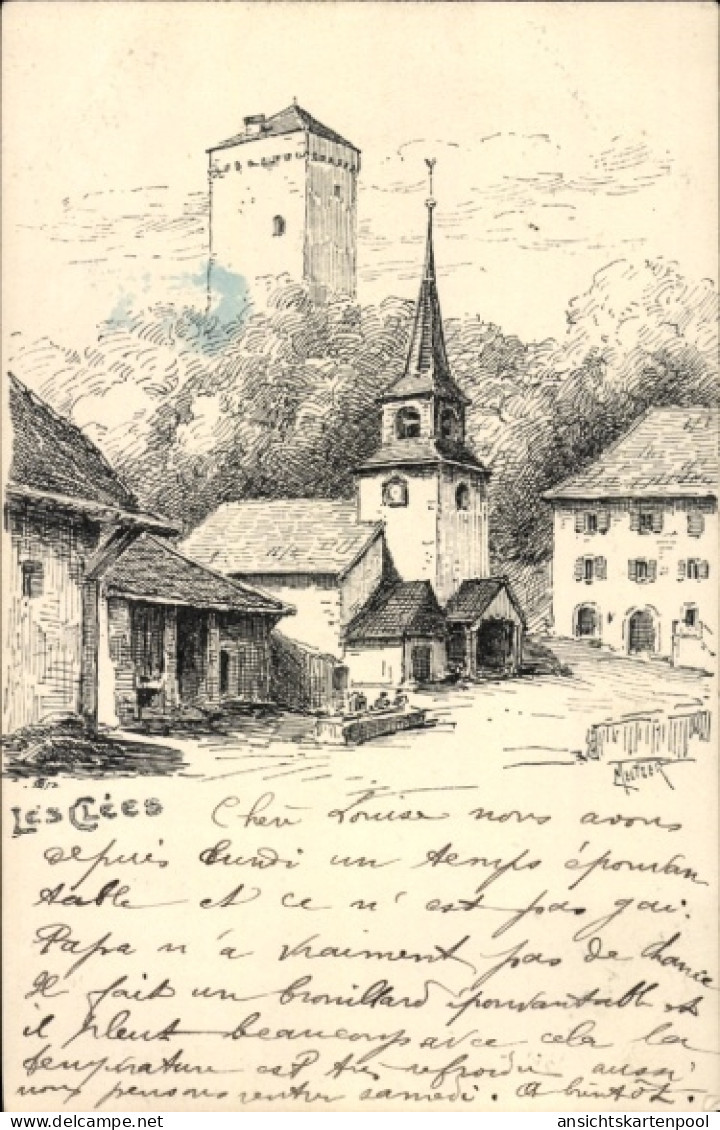 MEUTZER
LES CLÉES
Chère Louise nous avons
depuis lundi un temps épouvan
table et ce n'est pas gai.
Papa n'a vraiment pas de chance
Il fait un brouillard épouvantable et
il pleut beaucoup avec cela la
température est très refroidie aussi
nous pensons rentrer samedi. A bientôt.
ansichtskartenpool